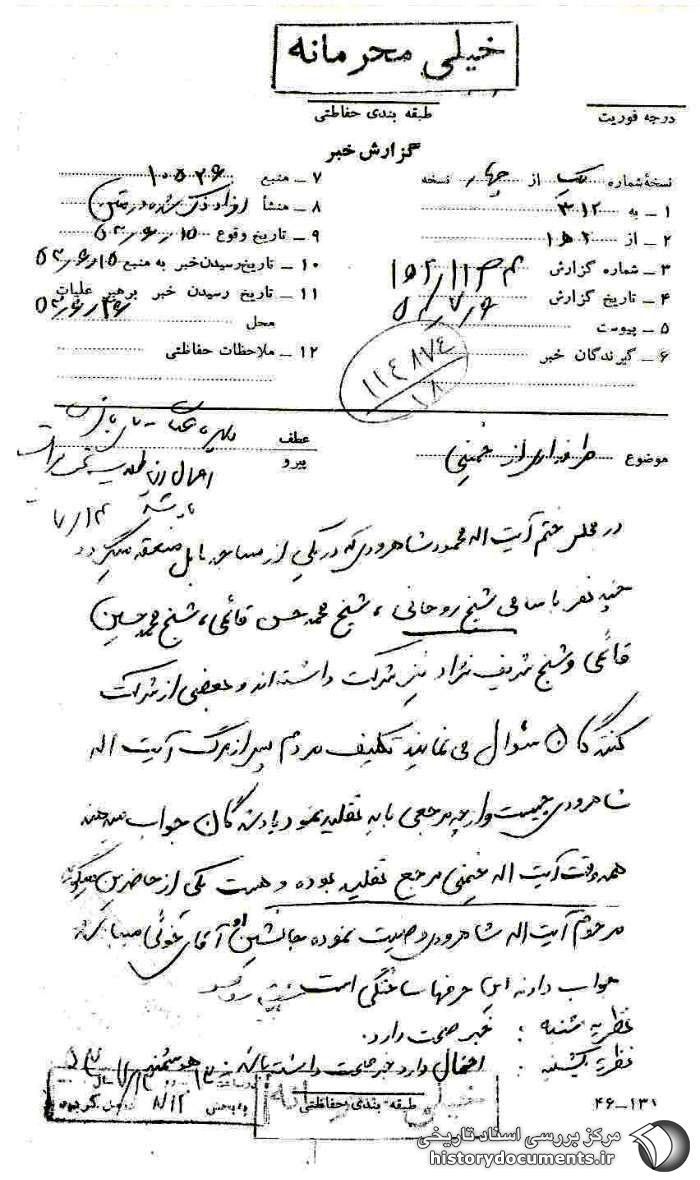 خیلی محرمانه
درجه فوریت
طبقه بندی حفاظتی
گزارش خبر
نسخهٔ شماره یک از چهار نسخه
۱ – به ۳۱۲
۲ – از
۳ – شماره گزارش
۴ – تاریخ گزارش
۵ – پیوست
۶ – گیرندگان خبر
۷ – منبع ۱۰۵۲۶
۸ – منشأ افراد ذکر شده در متن
۹ – تاریخ وقوع ۵۳٫۶٫۱۵
۱۰ – تاریخ رسیدن خبر به منبع ۵۳٫۶٫۱۵
۱۱ – تاریخ رسیدن خبر برهبر عملیات
محل
۱۲ – ملاحظات حفاظتی
۱۱۴۸۷۴
۱۸
موضوع طرفداری از خمینی
عطف
پیرو
در مجلس ختم آیت اله محمود شاهرودی که در یکی از مساجد بابل منعقد میگردد
چند نفر باسامی شیخ روحانی ، شیخ محمد حسن قائمی ، شیخ محمد حسین
قائمی و شیخ شریف نژاد نیز شرکت داشته اند و بعضی از شرکت
کنندگان سئوال می نمایند تکلیف مردم پس از مرگ آیت اله
شاهرودی چیست و از چه مرجعی باید تقلید نمود یادشدگان جواب میدهند
همه وقت آیت اله خمینی مرجع تقلید بوده و هست یکی از حاضرین میگوید
مرحوم آیت اله شاهرودی وصیت نموده جانشین او آقای خوئی میباشد
جواب دادند این حرفها ساختگی است
نظریه شنبه : خبر صحت دارد.
نظریه یکشنبه : احتمال دارد خبر صحت داشته باشد.
خیلی محرمانه
طبقه بندی حفاظتی
۴۶–۱۳۱
مرکز بررسی اسناد تاریخی
historydocuments.ir